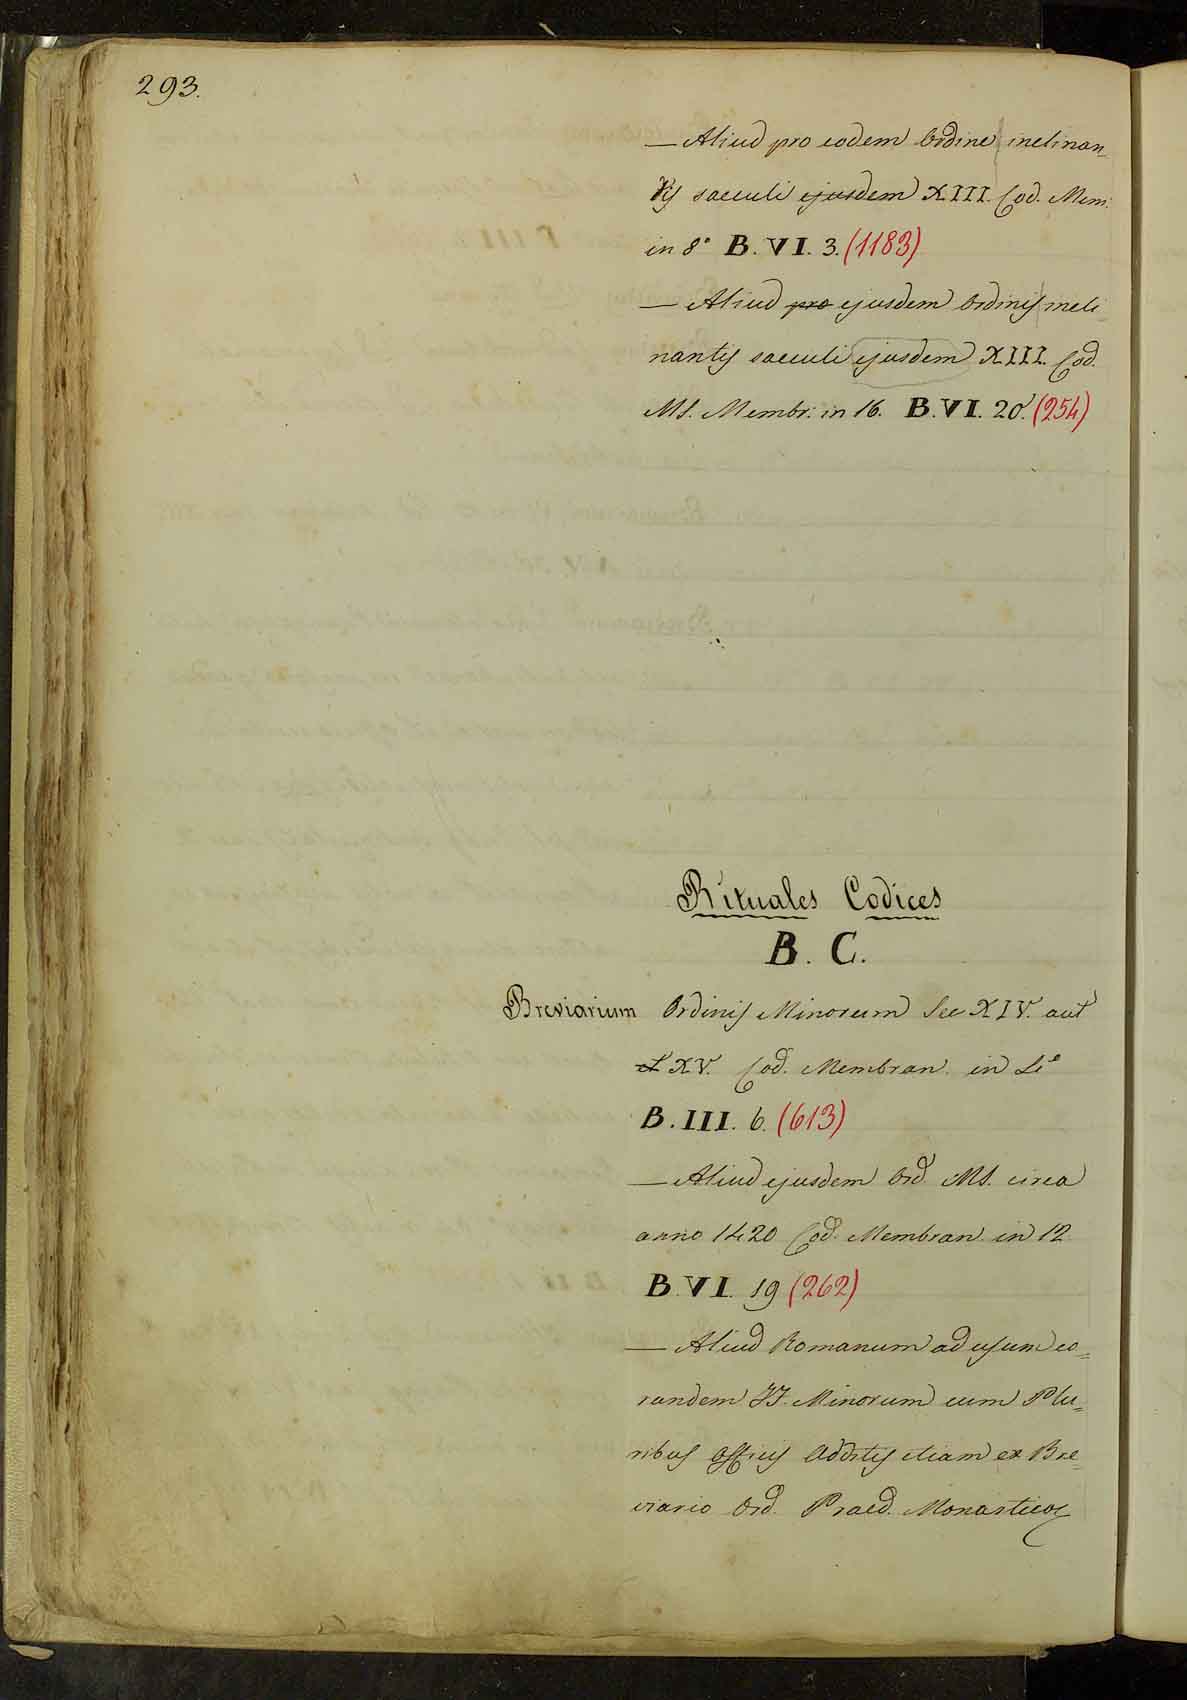 293.
— Aliud pro eodem Ordine inclinan-
tis saeculi ejusdem XIII. Cod. Mem.
in 8° B. VI. 3. (1183)
— Aliud pro ejusdem Ordinis incli-
nantis saeculi ejusdem XIII. Cod.
MS. Membr. in 16. B. VI. 20. (254)
Rituales Codices
B. C.
Breviarium Ordinis Minorum Sec XIV. aut
et XV. Cod. Membran. in 4°
B. III. 6. (613)
— Aliud ejusdem Ord. MS. circa
anno 1420 Cod. Membran. in 12
B. VI. 19 (262)
— Aliud Romanum ad usum eo=
rundem FF. Minorum cum Plu=
ribus Officiis Additis etiam ex Bre=
viario Ord. Praed. Monastico